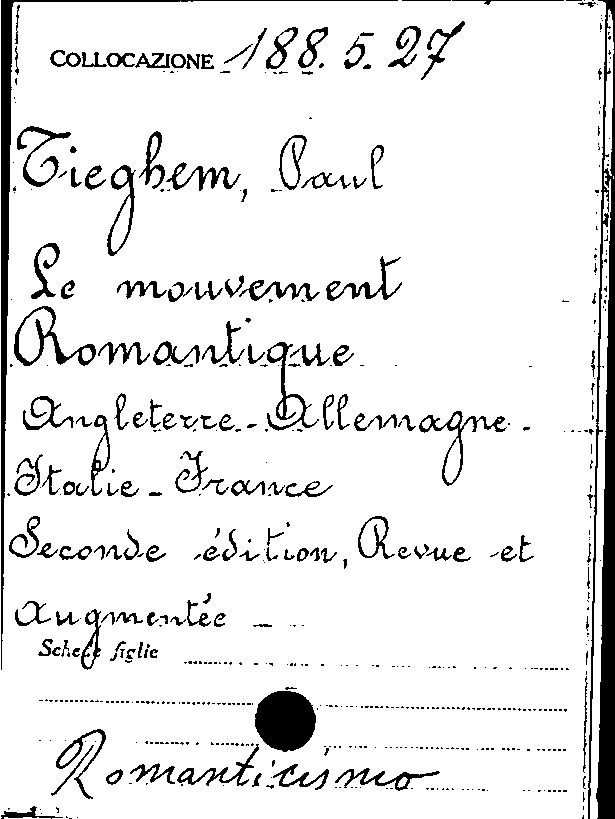 COLLOCAZIONE 188. 5. 27
Tieghem, Paul
Le mouvement
Romantique
Angleterre - Allemagne -
Italie - France
Seconde édition, Revue et
Augmentée -
Schede figlie
Romanticismo